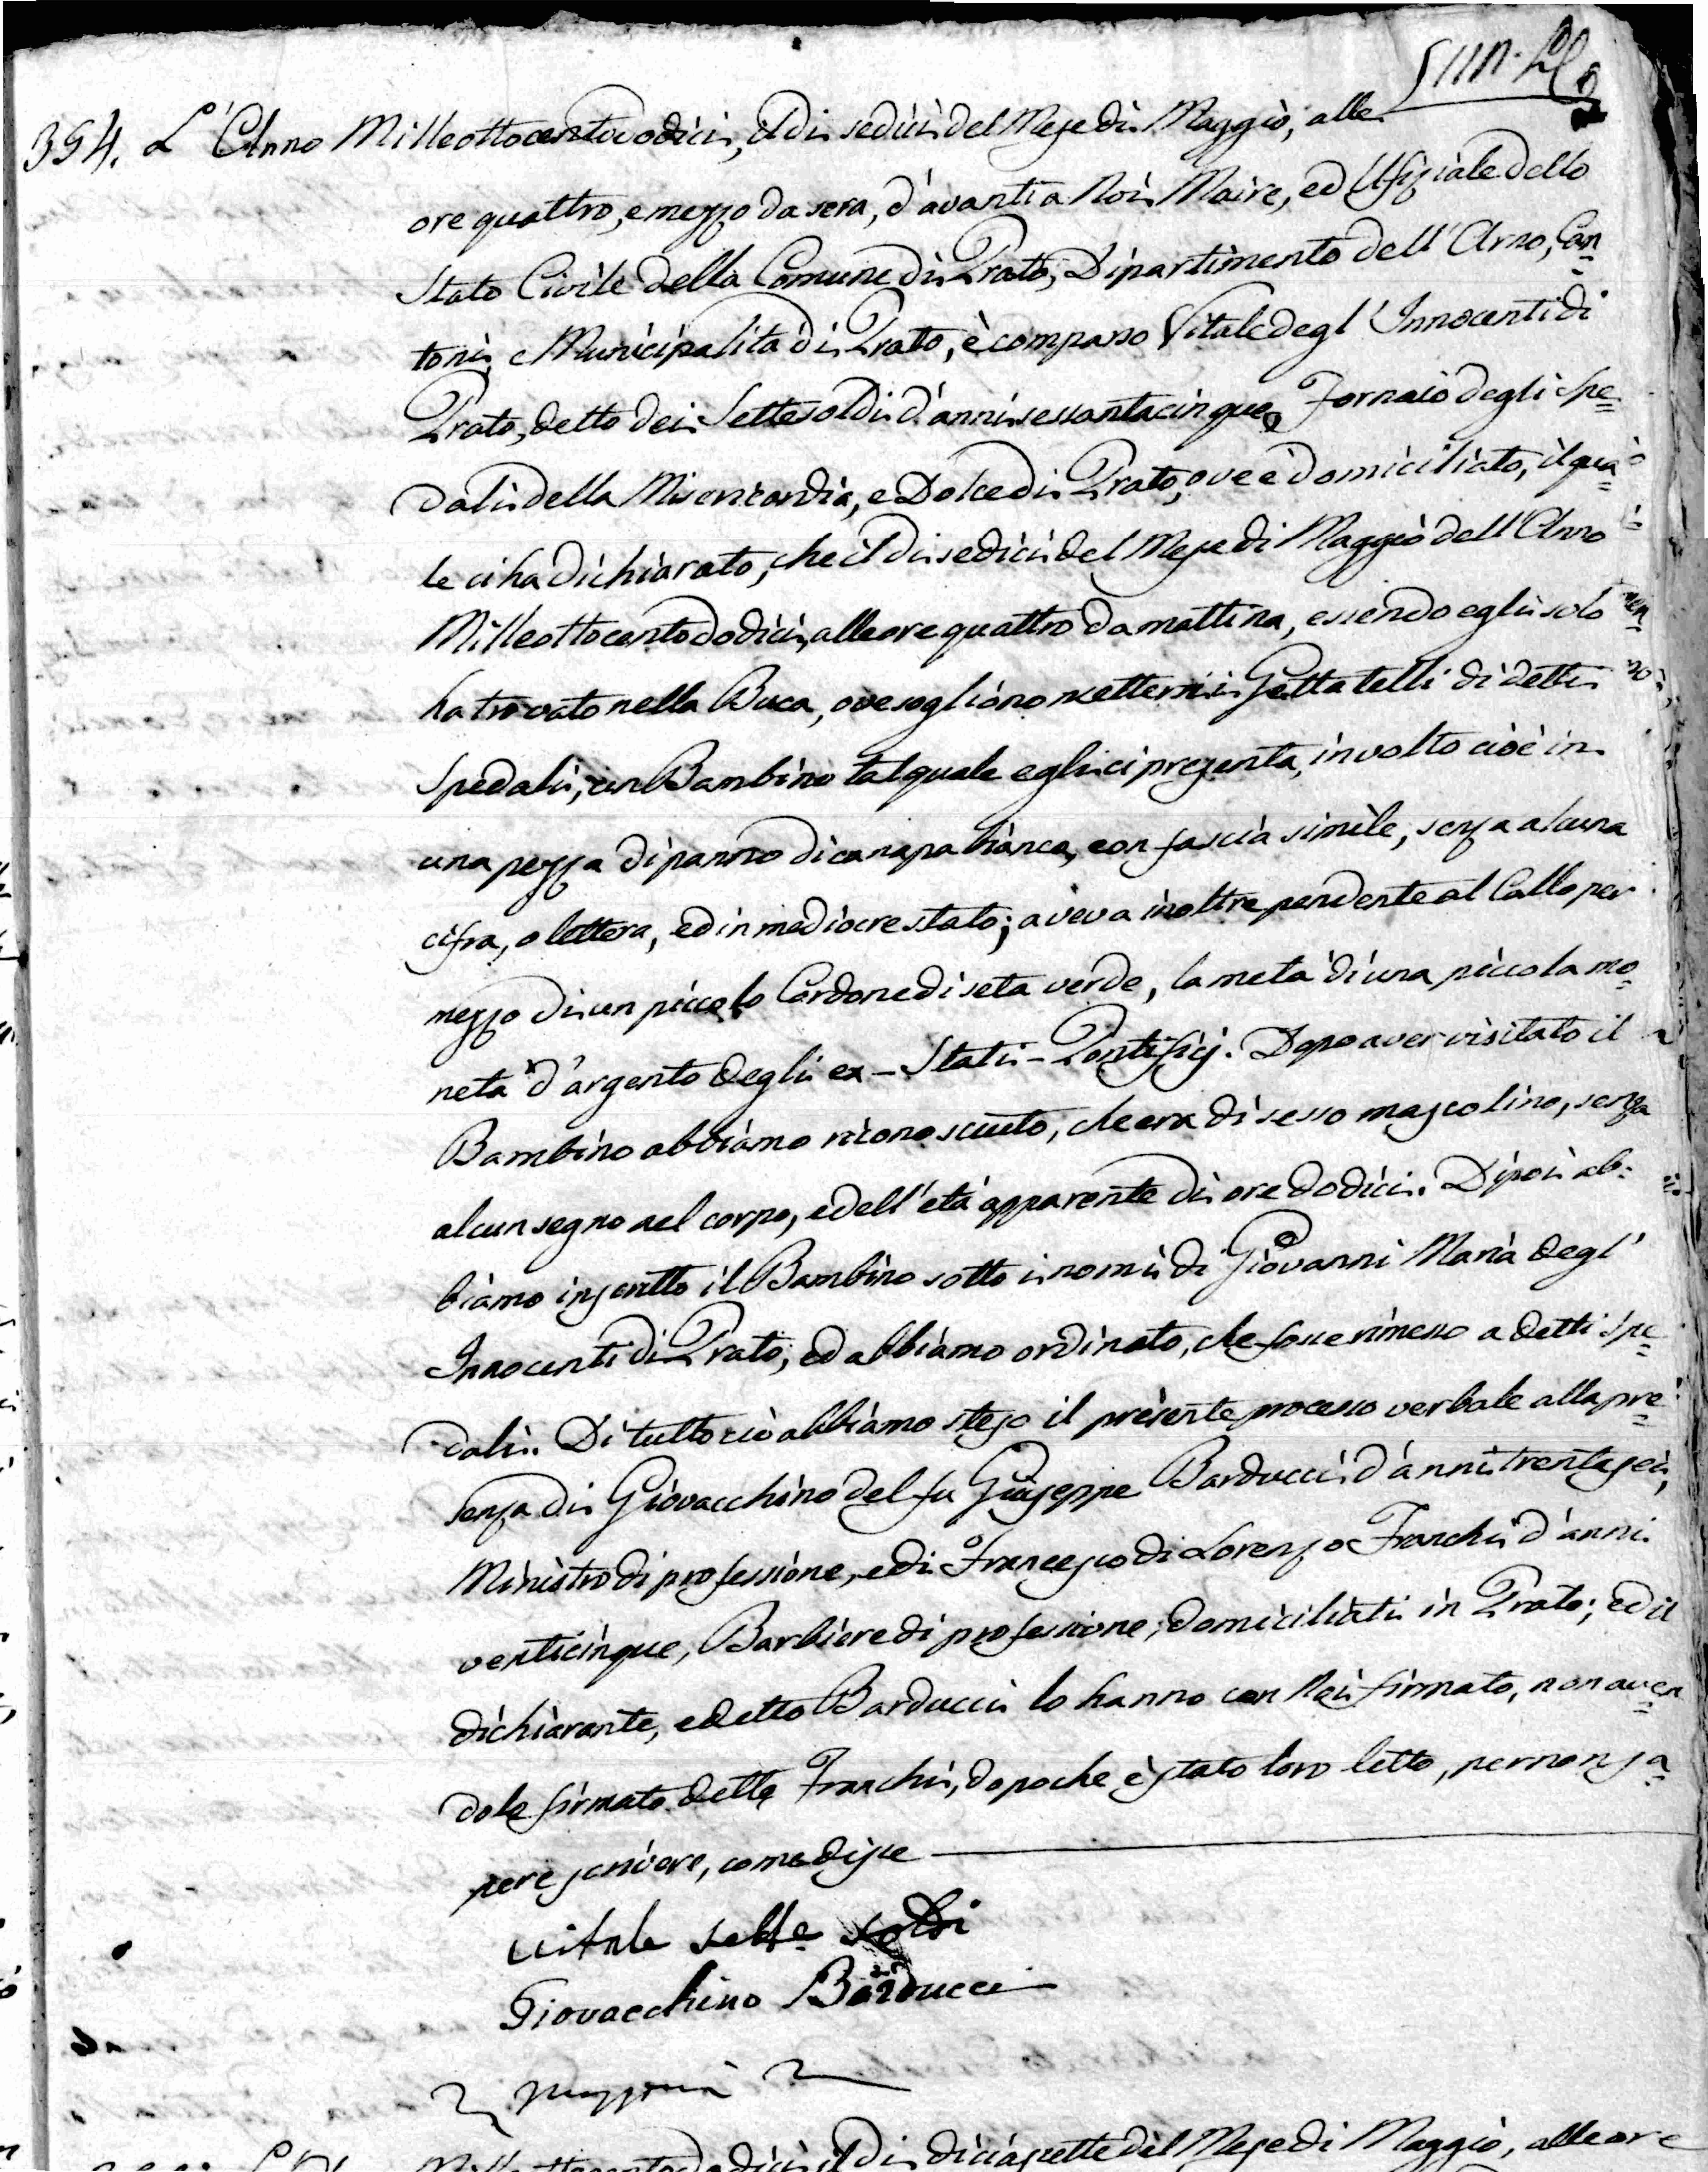 394. L'Anno Milleottocentododici, il dì sedici del Mese di Maggio, alle
ore quattro, e mezzo da sera, d'avanti a Noi Maire, ed Ufiziale dello
Stato Civile della Comune di Prato, Dipartimento dell'Arno, Can=
tone, e Municipalità di Prato, è comparso Vitale degl'Innocenti di
Prato, detto dei Settesoldi d'anni sessantacinque, Fornaio degli Spe=
dali della Misericordia, e Dolce di Prato, ove è domiciliato, il qua=
le ci ha dichiarato, che il dì sedici del Mese di Maggio dell'Anno
Milleottocentododici, alle ore quattro da mattina, essendo egli solo
ha trovato nella Buca, ove sogliono mettersi i Gettatelli di detti
Spedali, un Bambino tal quale egli ci presenta, involto cioè in
una pezza di panno di canapa bianca, con fascia simile, senza alcuna
cifra, o lettera, ed in mediocre stato; aveva inoltre pendente al Collo per
mezzo di un piccolo Cordone di seta verde, la metà di una piccola mo=
neta d'argento degli ex-Stati-Pontificj. Dopo aver visitato il
Bambino abbiamo riconosciuto, che era di sesso mascolino, senza
alcun segno nel corpo, e dell'età apparente di ore dodici. Dipoi ab=
biamo inscritto il Bambino sotto i nomi di Giovanni Maria degl'
Innocenti di Prato, ed abbiamo ordinato, che fosse rimesso a detti Spe=
dali. Di tutto ciò abbiamo steso il presente processo verbale alla pre=
senza di Giovacchino del fu Giuseppe Barducci d'anni trentasei,
Ministro di professione, e di Francesco di Lorenzo Franchi d'anni
venticinque, Barbiere di professione, domiciliati in Prato; ed il
dichiarante, e detto Barducci lo hanno con Noi firmato, non aven=
dolo firmato detto Franchi, dopo che è stato loro letto, per non sa=
pere scrivere, come disse
Vitale sette soldi
Giovacchino Barducci
Milleottocentododici il Dì diciasette del Mese di Maggio, alle ore